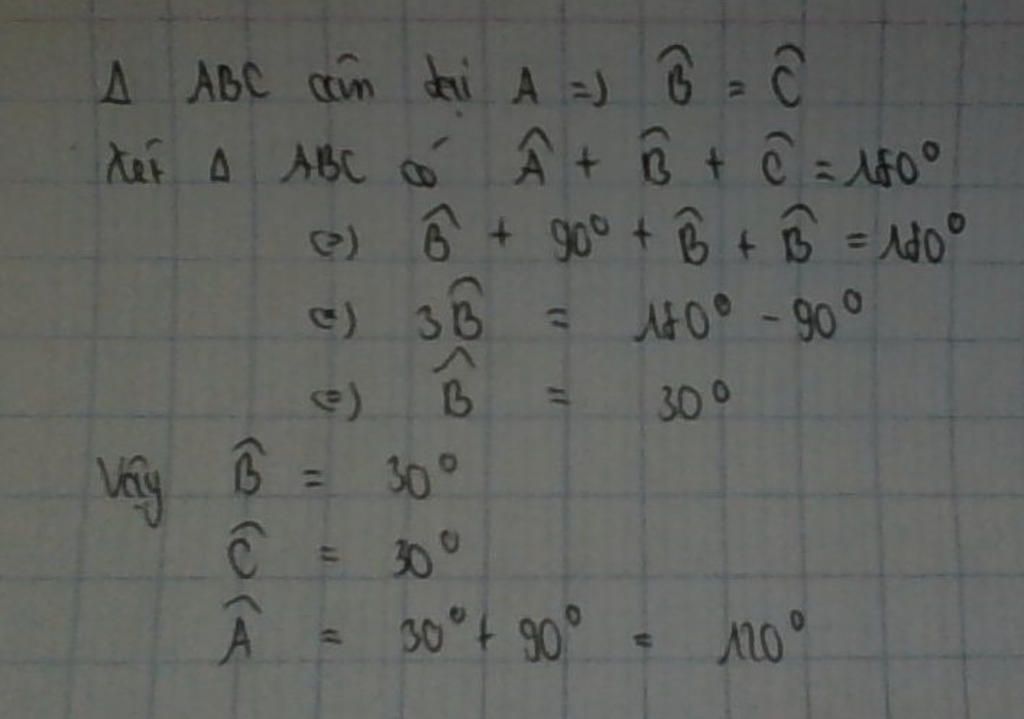 Δ ABC cân tại A => B̂ = Ĉ
Xét Δ ABC có Â + B̂ + Ĉ = 180°
<=> B̂ + 90° + B̂ + B̂ = 180°
<=> 3B̂ = 180° - 90°
<=> B̂ = 30°
Vậy B̂ = 30°
Ĉ = 30°
Â = 30° + 90° = 120°